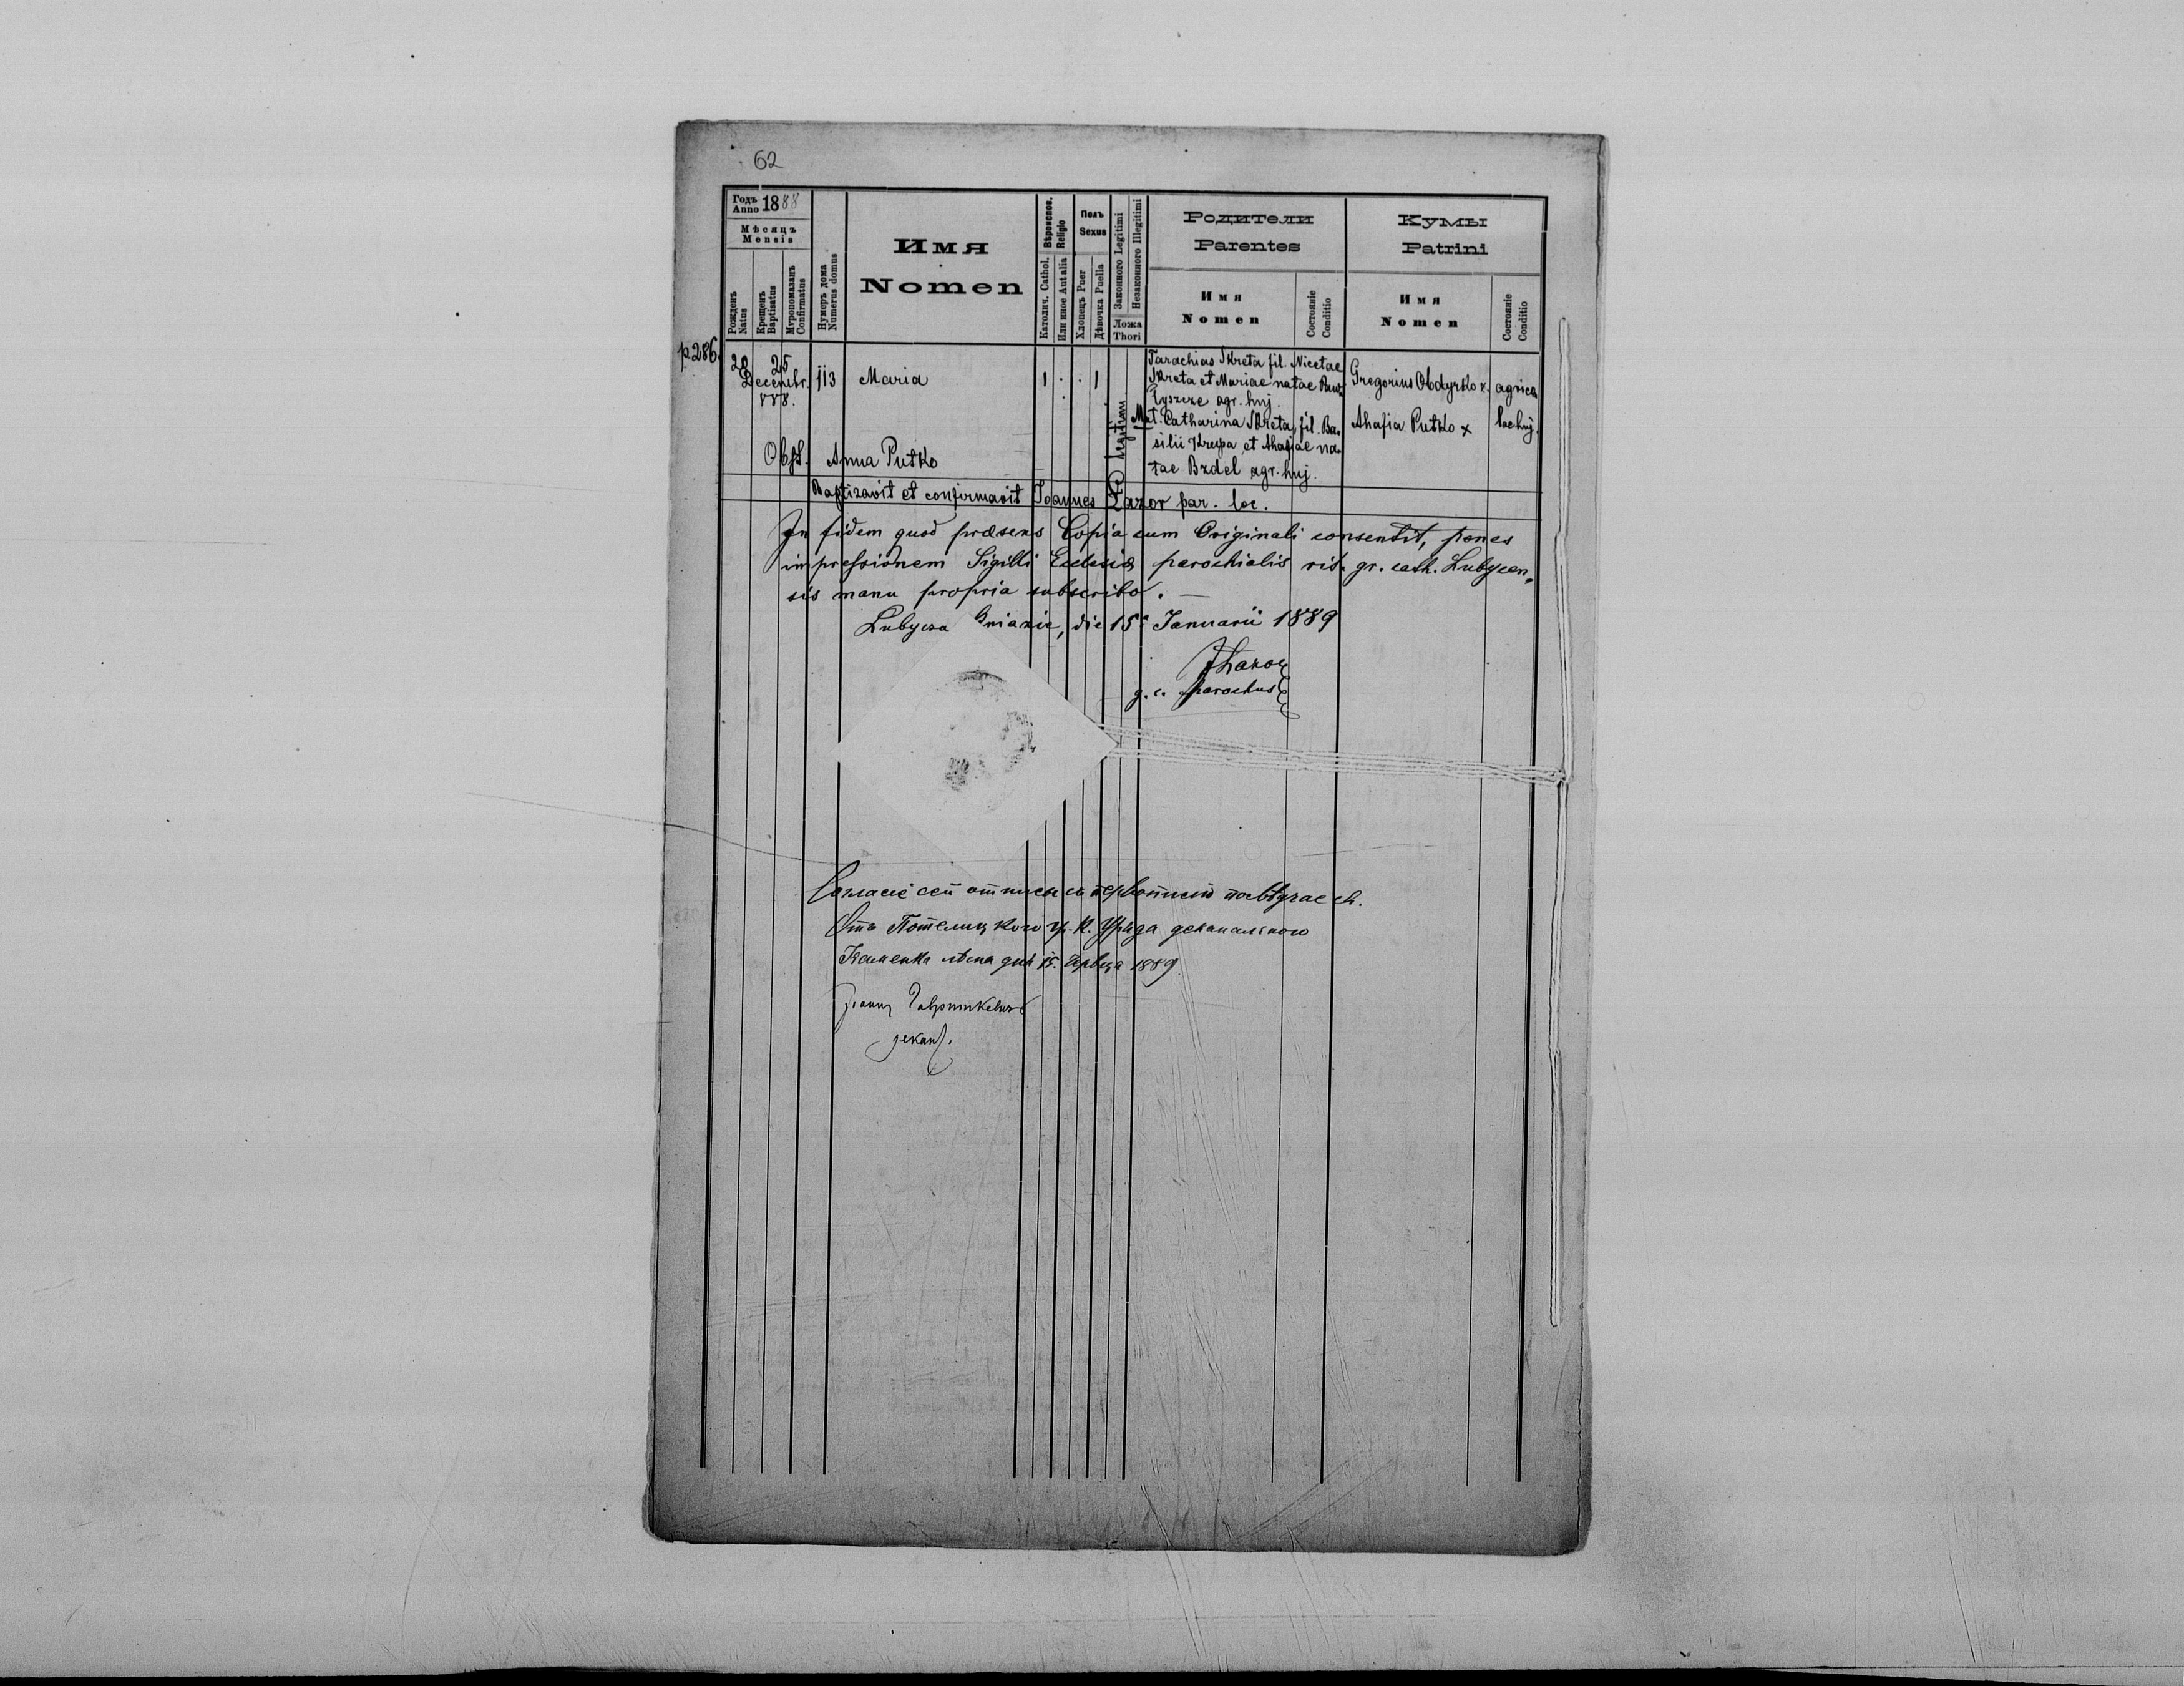 62
Годъ Anno 1888
Мѣсяцъ
Mensis
Рожденъ Natus
Крещенъ Baptisatus
Мѵропомазанъ Confirmatus
Нумеръ дома Numerus domus
Имя
Nomen
Вѣроиспов. Religio
Католич. Cathol.
Или иное Aut alia
Полъ
Sexus
Хлопецъ Puer
Дѣвочка Puella
Законного Legitimi
Незаконного Illegitimi
Ложа
Thori
Родители
Parentes
Имя
Nomen
Состояніе
Conditio
Кумы
Patrini
Имя
Nomen
Состояніе
Conditio
p. 286.
20 25
Decembr.
888.
113
Maria
1 . . 1
Legitimi
Tarachias Skreta fil. Nicetae
Skreta et Mariae natae
Łyszcze agr. huj.
Mat. Catharina Skreta, fil. Ba,
silii Krupa et Ahafiae na,
tae Bzdel agr. huj.
Gregorius Obdyrko x.
Ahafia Putko x
agricol.
loc huj.
Obst. Anna Putko
Baptizavit et confirmavit Joannes Łazor par. loc.
In fidem quod præsens Copia cum Originali consentit, penes
impressionem Sigilli Ecclesiæ parochialis rit. gr. cath. Lubycen,
sis manu propria subscribo. —
Lubycza Kniazie, die 15. Januarii 1889
JŁazor
g. c. parochus
Согласіе сеи отписи съ первописію посвѣдчаесь.
Отъ Потелицкого гр. к. Уряда деканального
Каменка лѣсна дня 15. Червця 1889.
деканъ.